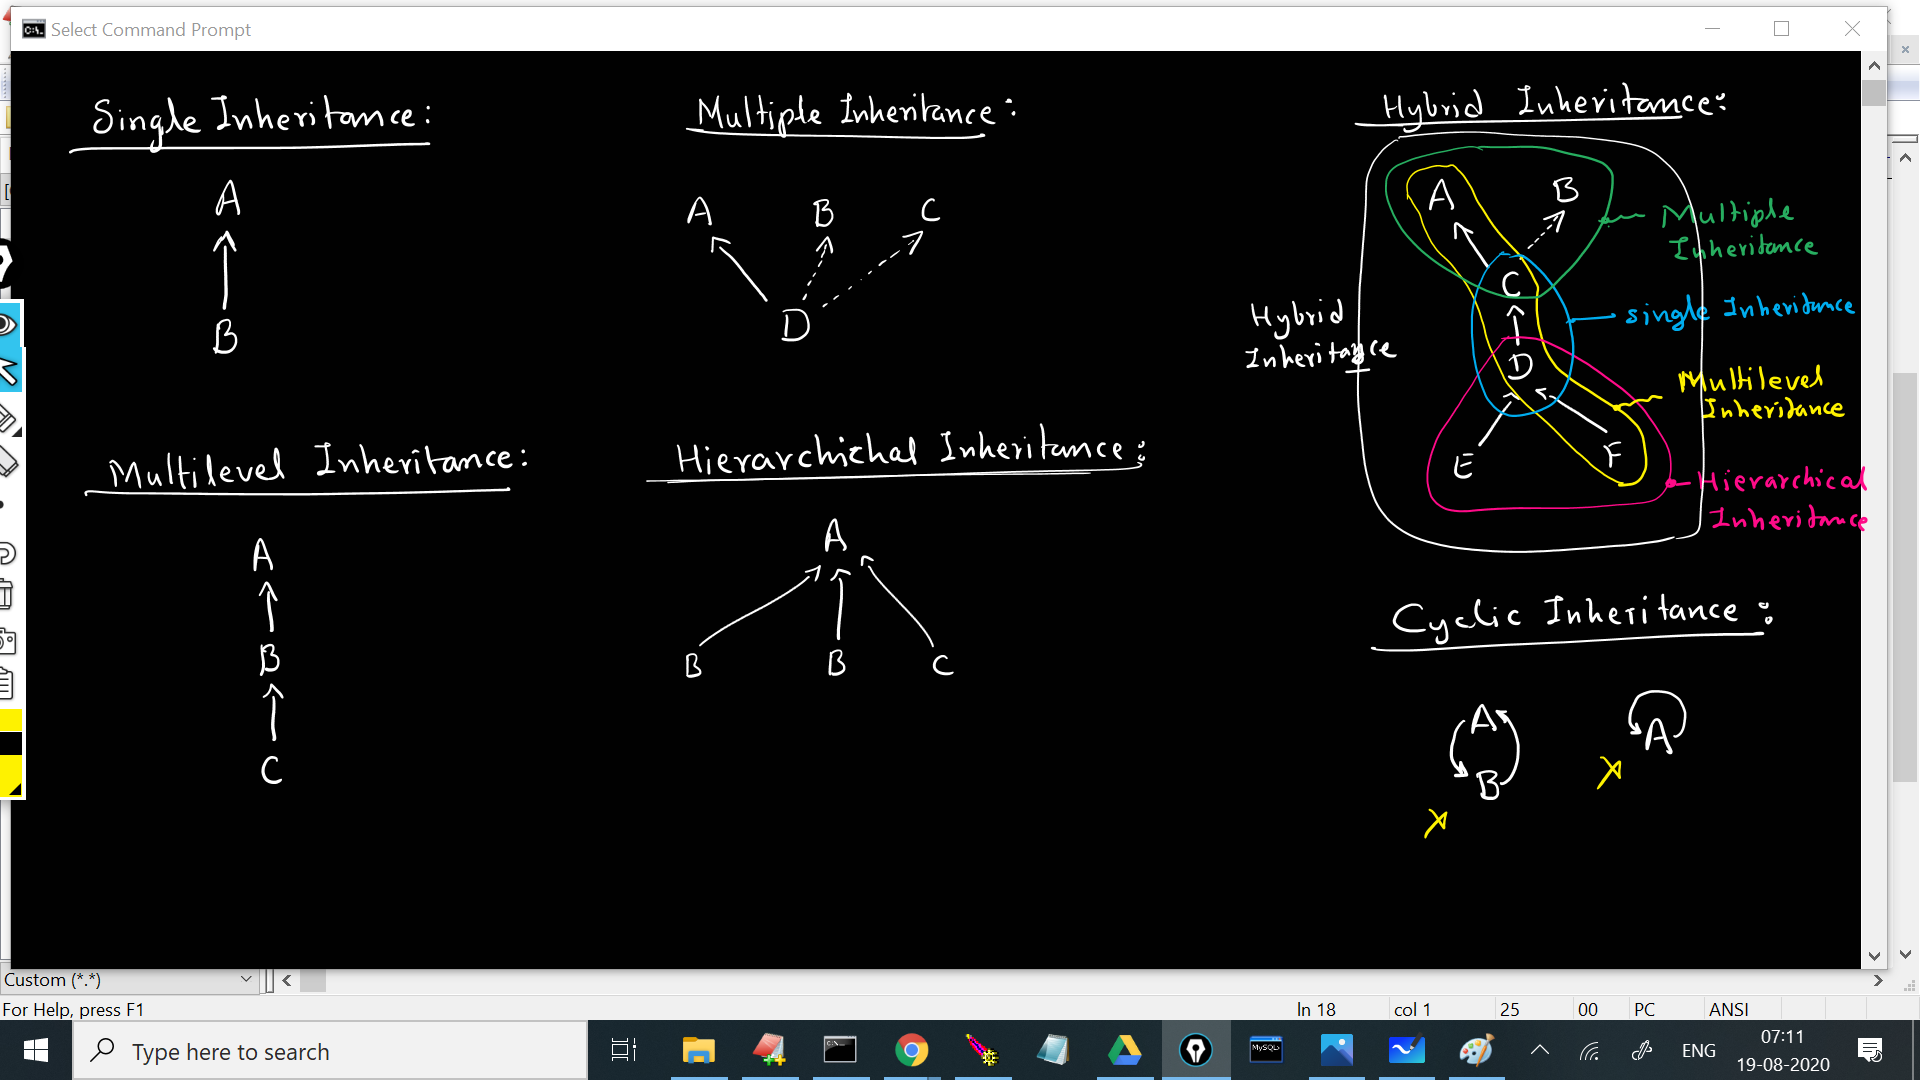 Select Command Prompt
Single Inheritance:
A
B
Multiple Inheritance:
A B C
D
Hybrid Inheritance:
A B
C
D
E F
Multiple
Inheritance
single Inheritance
Multilevel
Inheritance
Hierarchical
Inheritance
Hybrid
Inheritance
Multilevel Inheritance:
A
B
C
Hierarchichal Inheritance:
A
B B C
Cyclic Inheritance:
A
B
A
Custom (*.*)
For Help, press F1
ln 18 col 1 25 00 PC ANSI
Type here to search
MySQL
ENG
07:11
19-08-2020